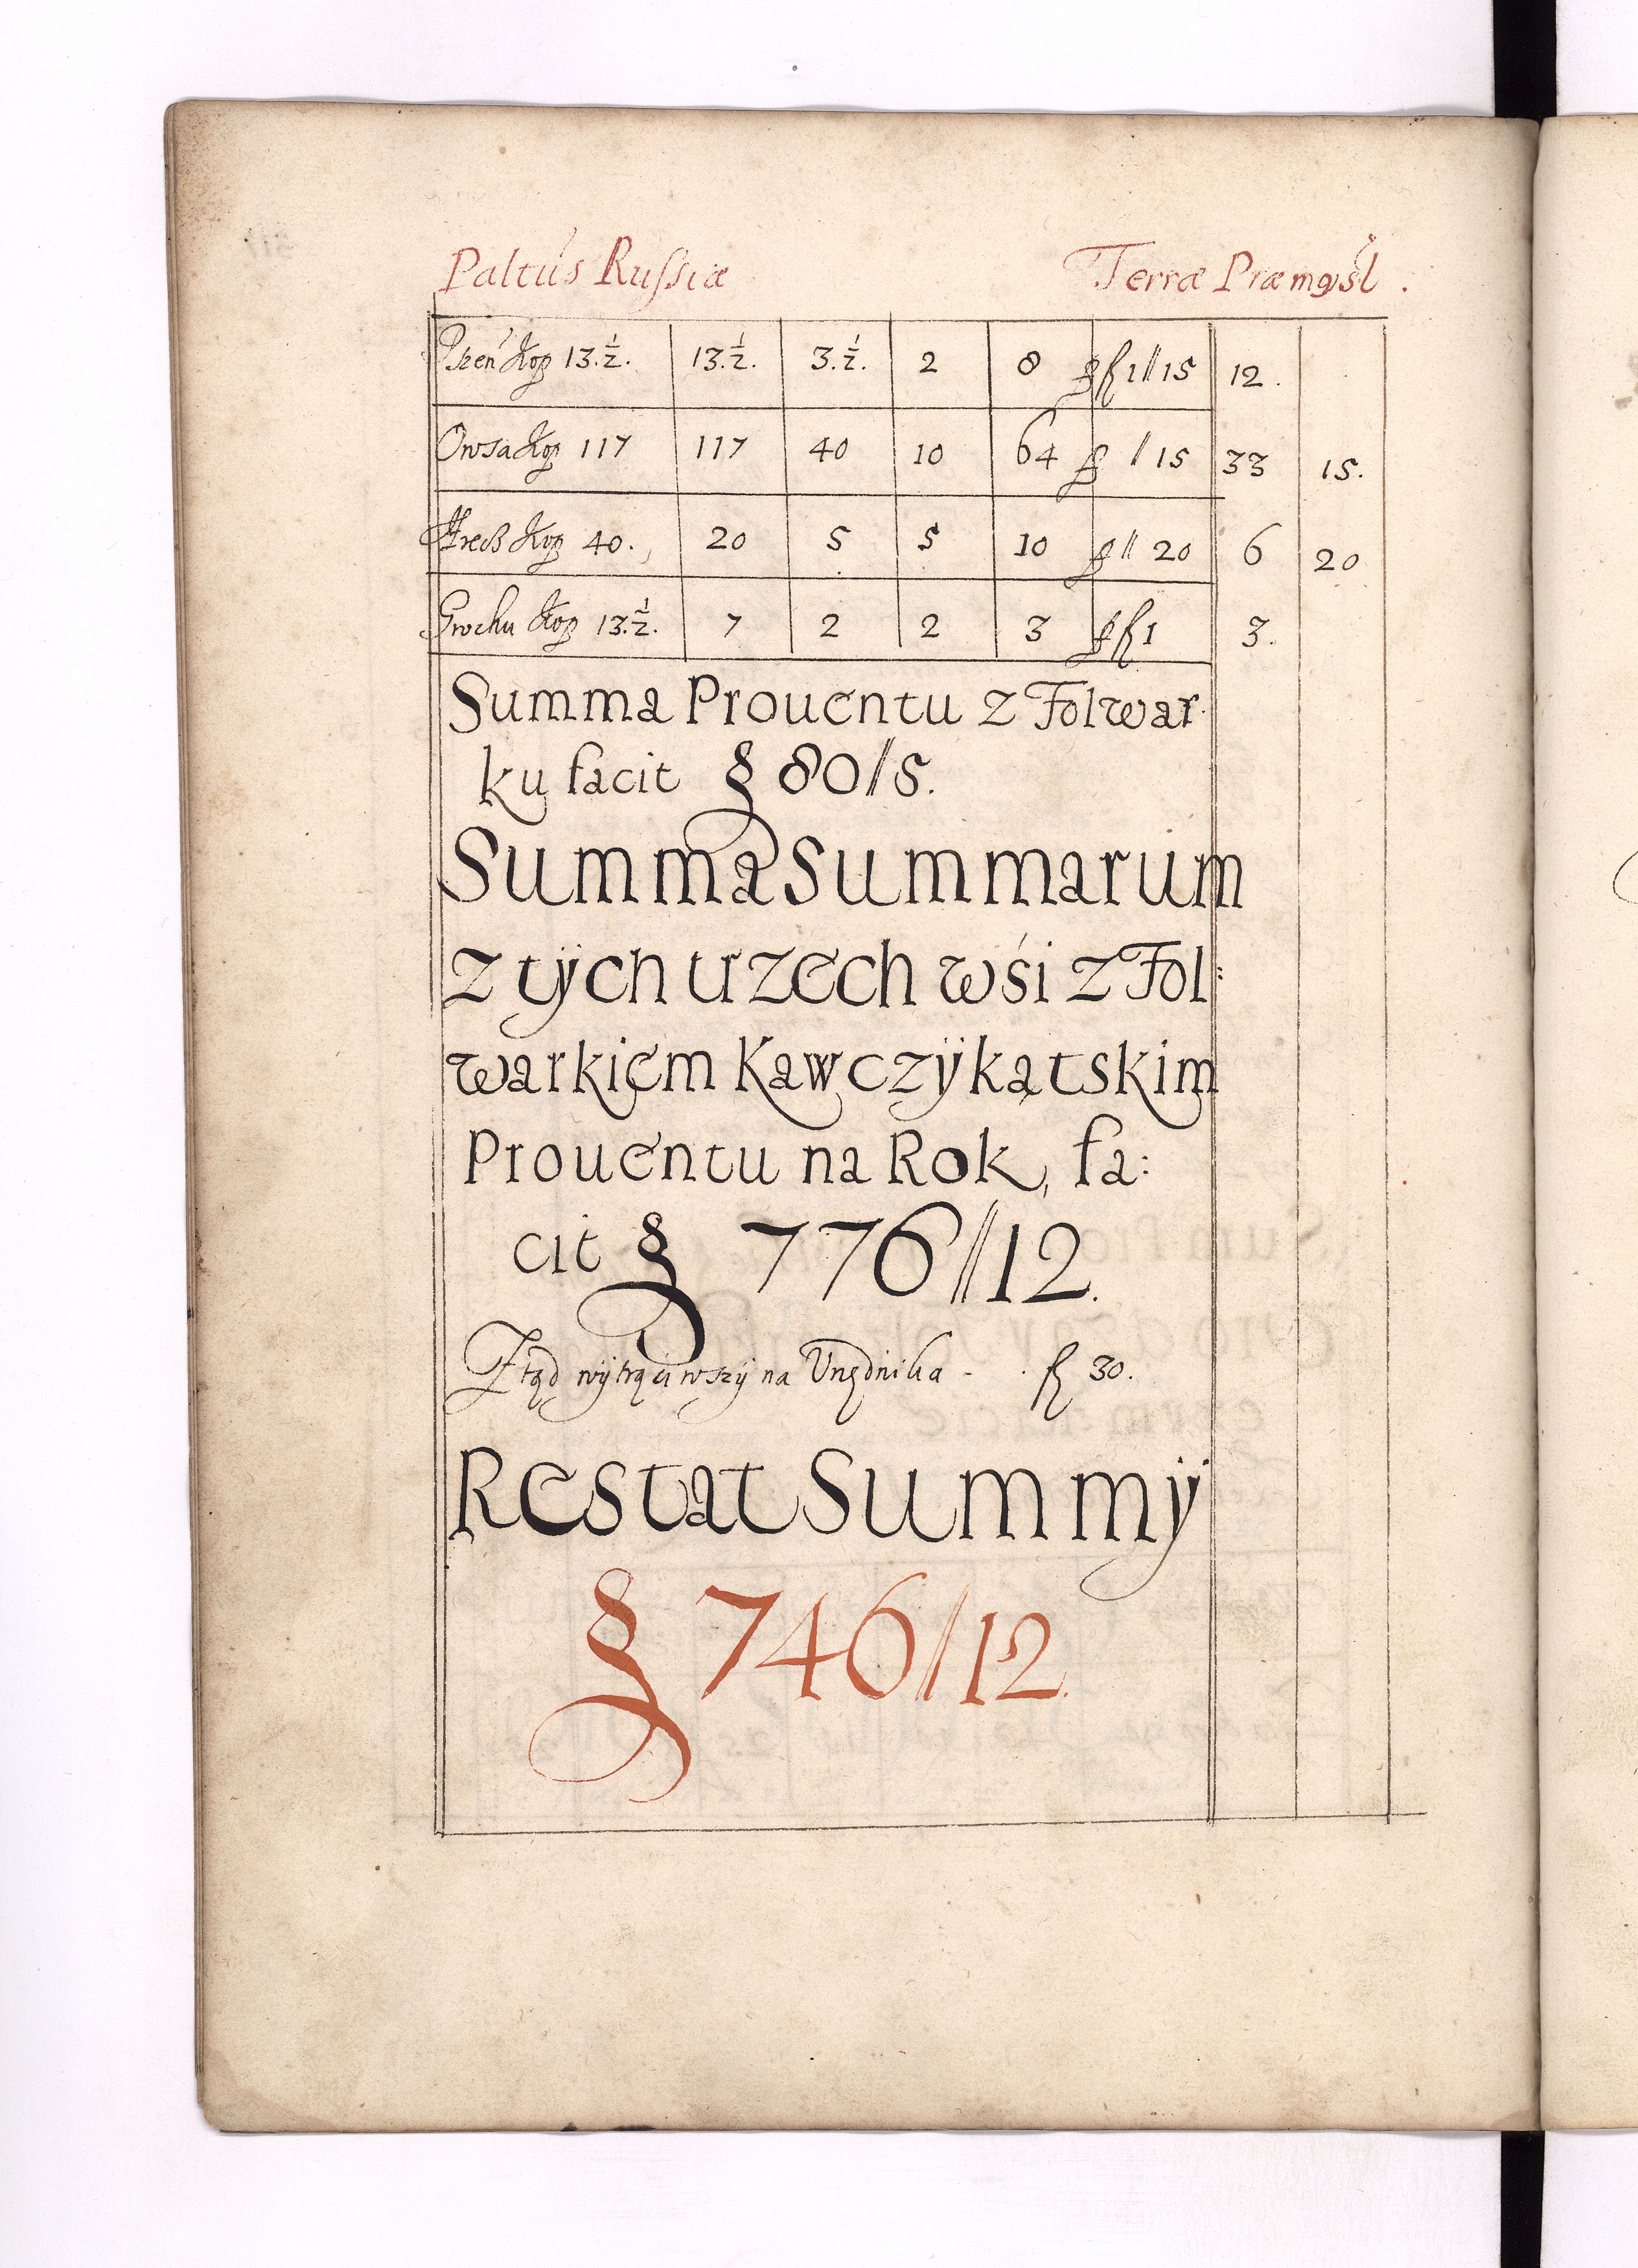 Paltus Russiæ Terræ Præmyśl.
Pszen Kop 13.½. 13.½. 3.½. 2 8 p fl 1//15 12.
Owsa Kop 117 117 40 10 64 p //15 33 15.
Hrecz Kop 40. 20 5 5 10 p // 20 6 20
Grochu Kop 13.½. 7 2 2 3 p fl 1 3.
Summa Prouentu z Folwar
ku facit § 80//5.
Summa Summarum
z tÿch trzech wśi z Fol:
warkiem Kawczÿkątskim
Prouentu na Rok, fa:
cit § 776//12.
Ztąd wÿtrąciwszÿ na Urzędnika - . fl 30.
Restat Summÿ
§ 746//12.